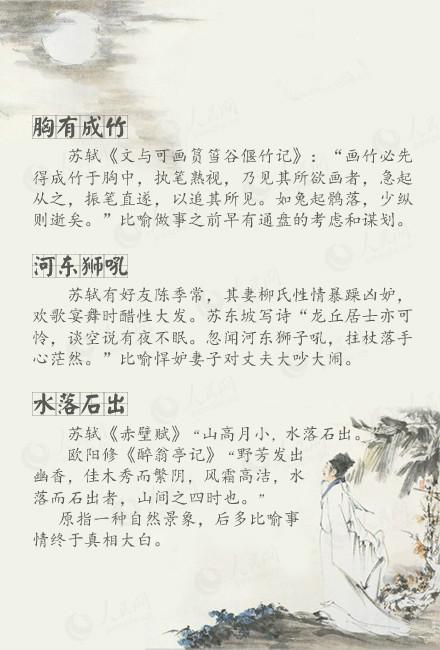 胸有成竹
苏轼《文与可画筼筜谷偃竹记》：“画竹必先
得成竹于胸中，执笔熟视，乃见其所欲画者，急起
从之，振笔直遂，以追其所见。如兔起鹘落，少纵
则逝矣。”比喻做事之前早有通盘的考虑和谋划。
河东狮吼
苏轼有好友陈季常，其妻柳氏性情暴躁凶妒，
欢歌宴舞时醋性大发。苏东坡写诗“龙丘居士亦可
怜，谈空说有夜不眠。忽闻河东狮子吼，拄杖落手
心茫然。”比喻悍妒妻子对丈夫大吵大闹。
水落石出
苏轼《赤壁赋》“山高月小，水落石出。
欧阳修《醉翁亭记》“野芳发出
幽香，佳木秀而繁阴，风霜高洁，水
落而石出者，山间之四时也。”
原指一种自然景象，后多比喻事
情终于真相大白。
人民网